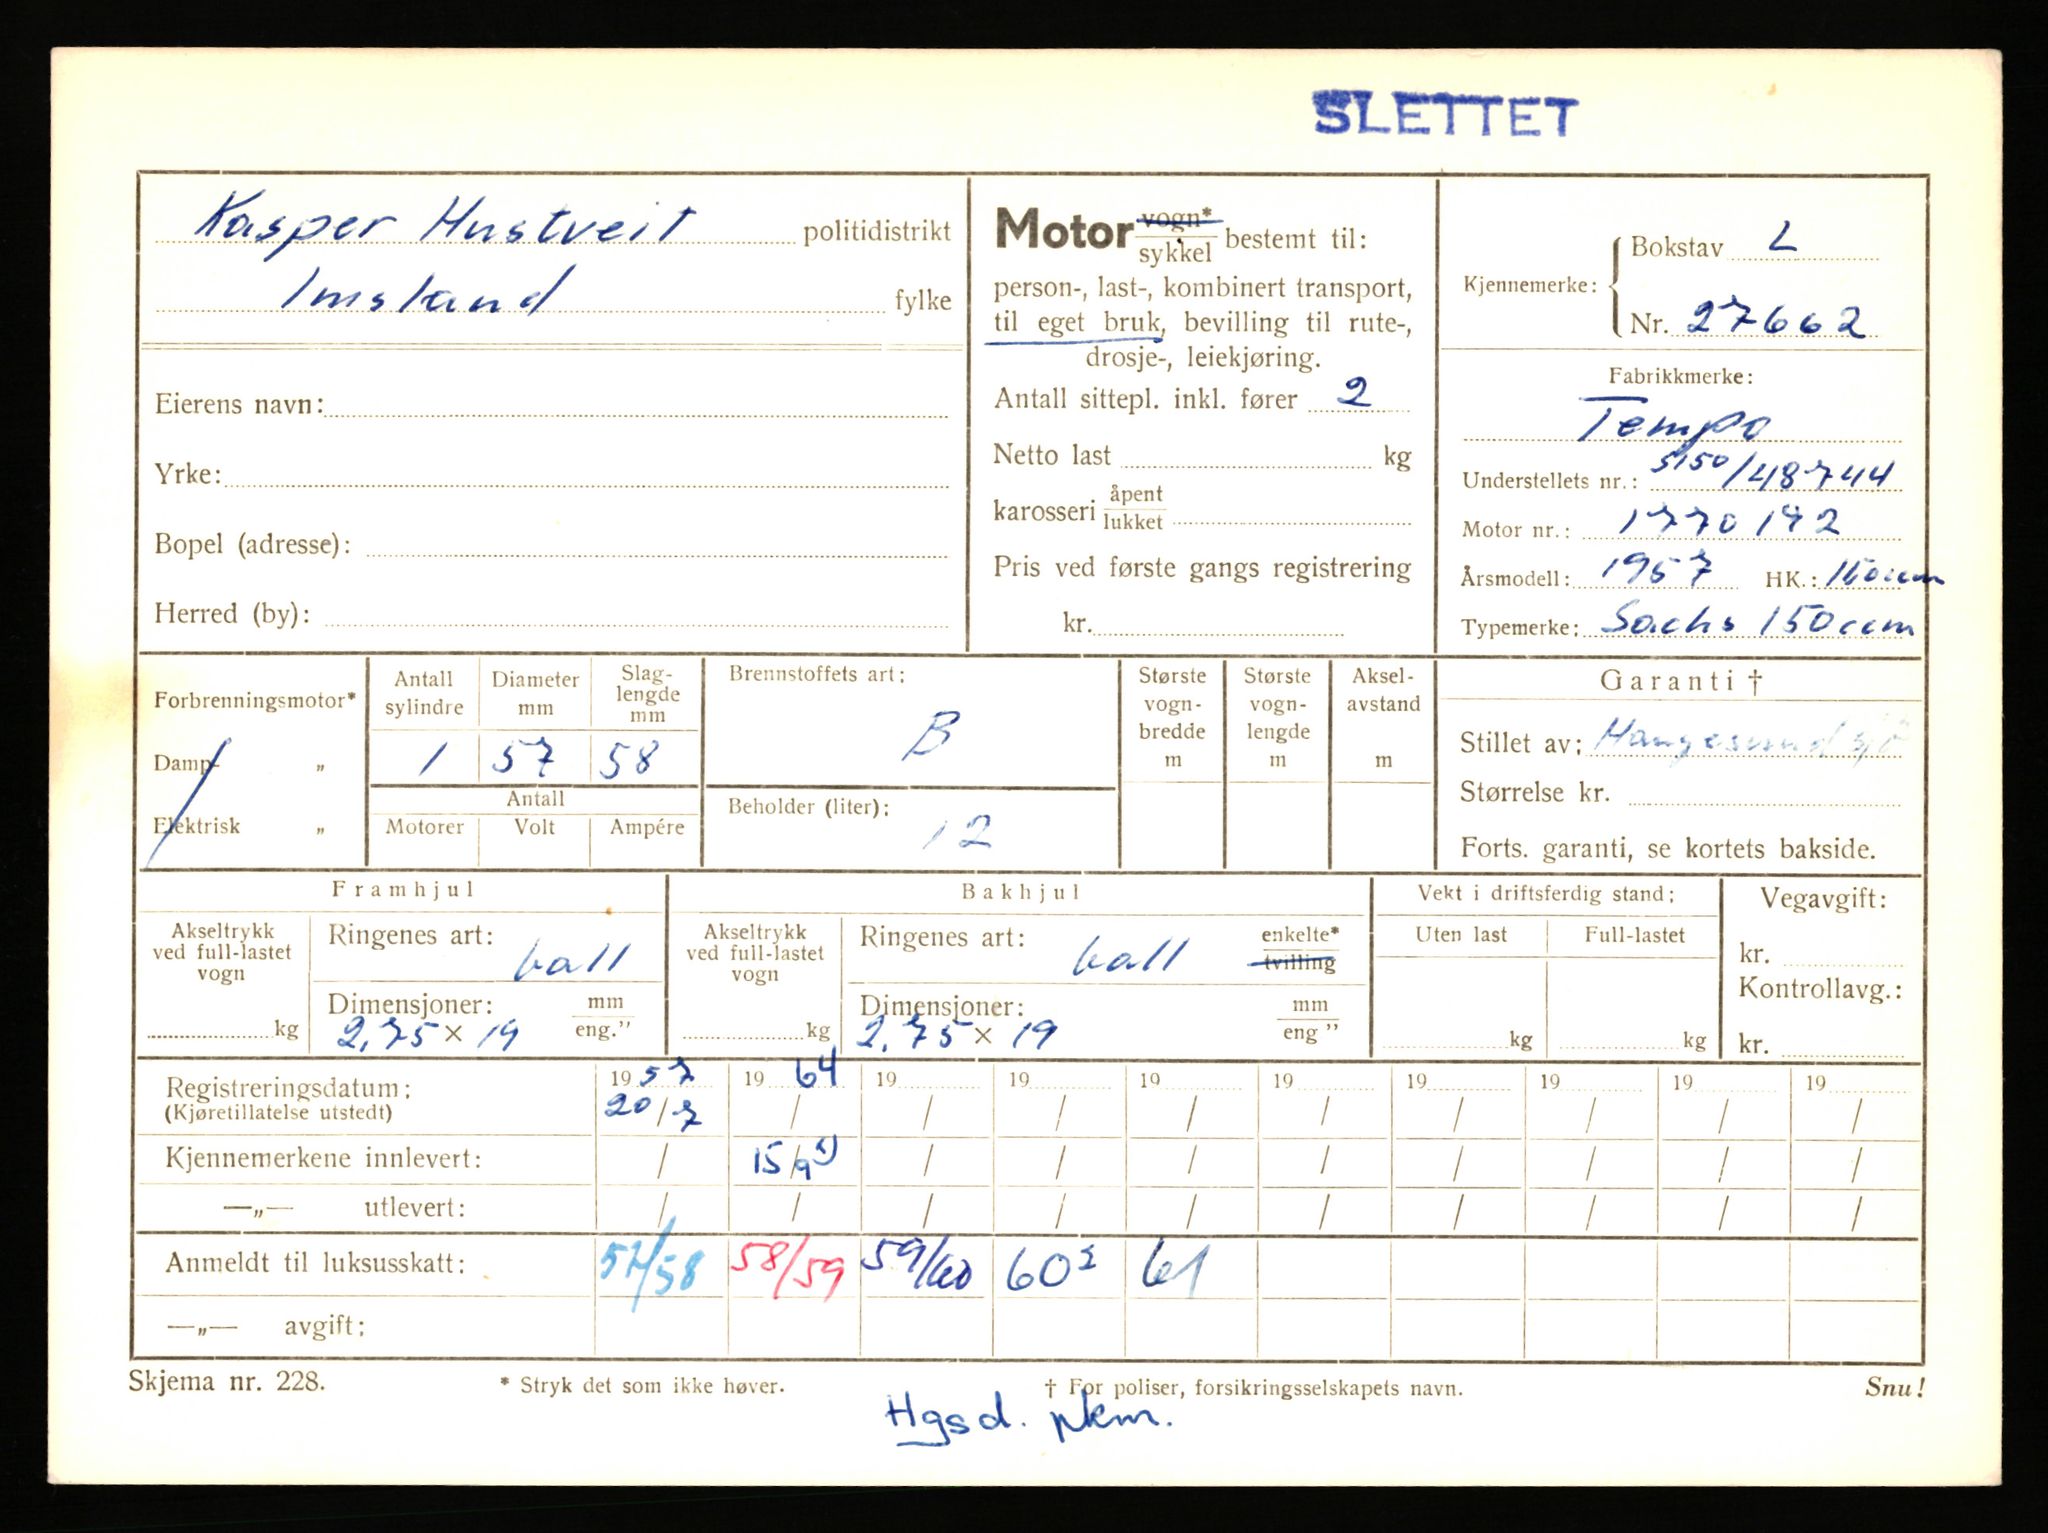 SLETTET
Kasper Hustveit politidistrikt
Imsland fylke
Eierens navn:
Yrke:
Bopel (adresse):
Herred (by):
Motor vogn* / sykkel bestemt til:
person-, last-, kombinert transport,
til eget bruk, bevilling til rute-,
drosje-, leiekjøring.
Antall sittepl. inkl. fører 2
Netto last kg
karosseri åpent / lukket
Pris ved første gangs registrering
kr.
Kjennemerke: Bokstav L
Nr. 27662
Fabrikkmerke:
Tempo
Understellets nr.: 5150/48744
Motor nr.: 1770142
Årsmodell: 1957 HK.: 150ccm
Typemerke: Sachs 150ccm
Forbrenningsmotor*
Damp- „
Elektrisk „
Antall sylindre Diameter mm Slag-lengde mm
1 57 58
Antall
Motorer Volt Ampére
Brennstoffets art:
B
Beholder (liter):
12
Største vogn-bredde m
Største vogn-lengde m
Aksel-avstand m
Garanti †
Stillet av: Haugesund Sjø
Størrelse kr.
Forts. garanti, se kortets bakside.
Framhjul
Akseltrykk ved full-lastet vogn
kg
Ringenes art:
ball
Dimensjoner: mm
2,75 x 19 eng."
Bakhjul
Akseltrykk ved full-lastet vogn
kg
Ringenes art: enkelte*
ball tvilling
Dimensjoner: mm
2,75 x 19 eng "
Vekt i driftsferdig stand:
Uten last Full-lastet
kg kg
Vegavgift:
kr.
Kontrollavg.:
kr.
Registreringsdatum: 1957 1964 19 19 19 19 19 19 19 19
(Kjøretillatelse utstedt) 20/7 / / / / / / / / /
Kjennemerkene innlevert: / 15/9 / / / / / / / /
—„— utlevert: / / / / / / / / / /
Anmeldt til luksusskatt: 57/58 58/59 59/60 60² 61
—„— avgift:
Skjema nr. 228. * Stryk det som ikke høver. † For poliser, forsikringsselskapets navn. Snu!
Hgsd. pkm.